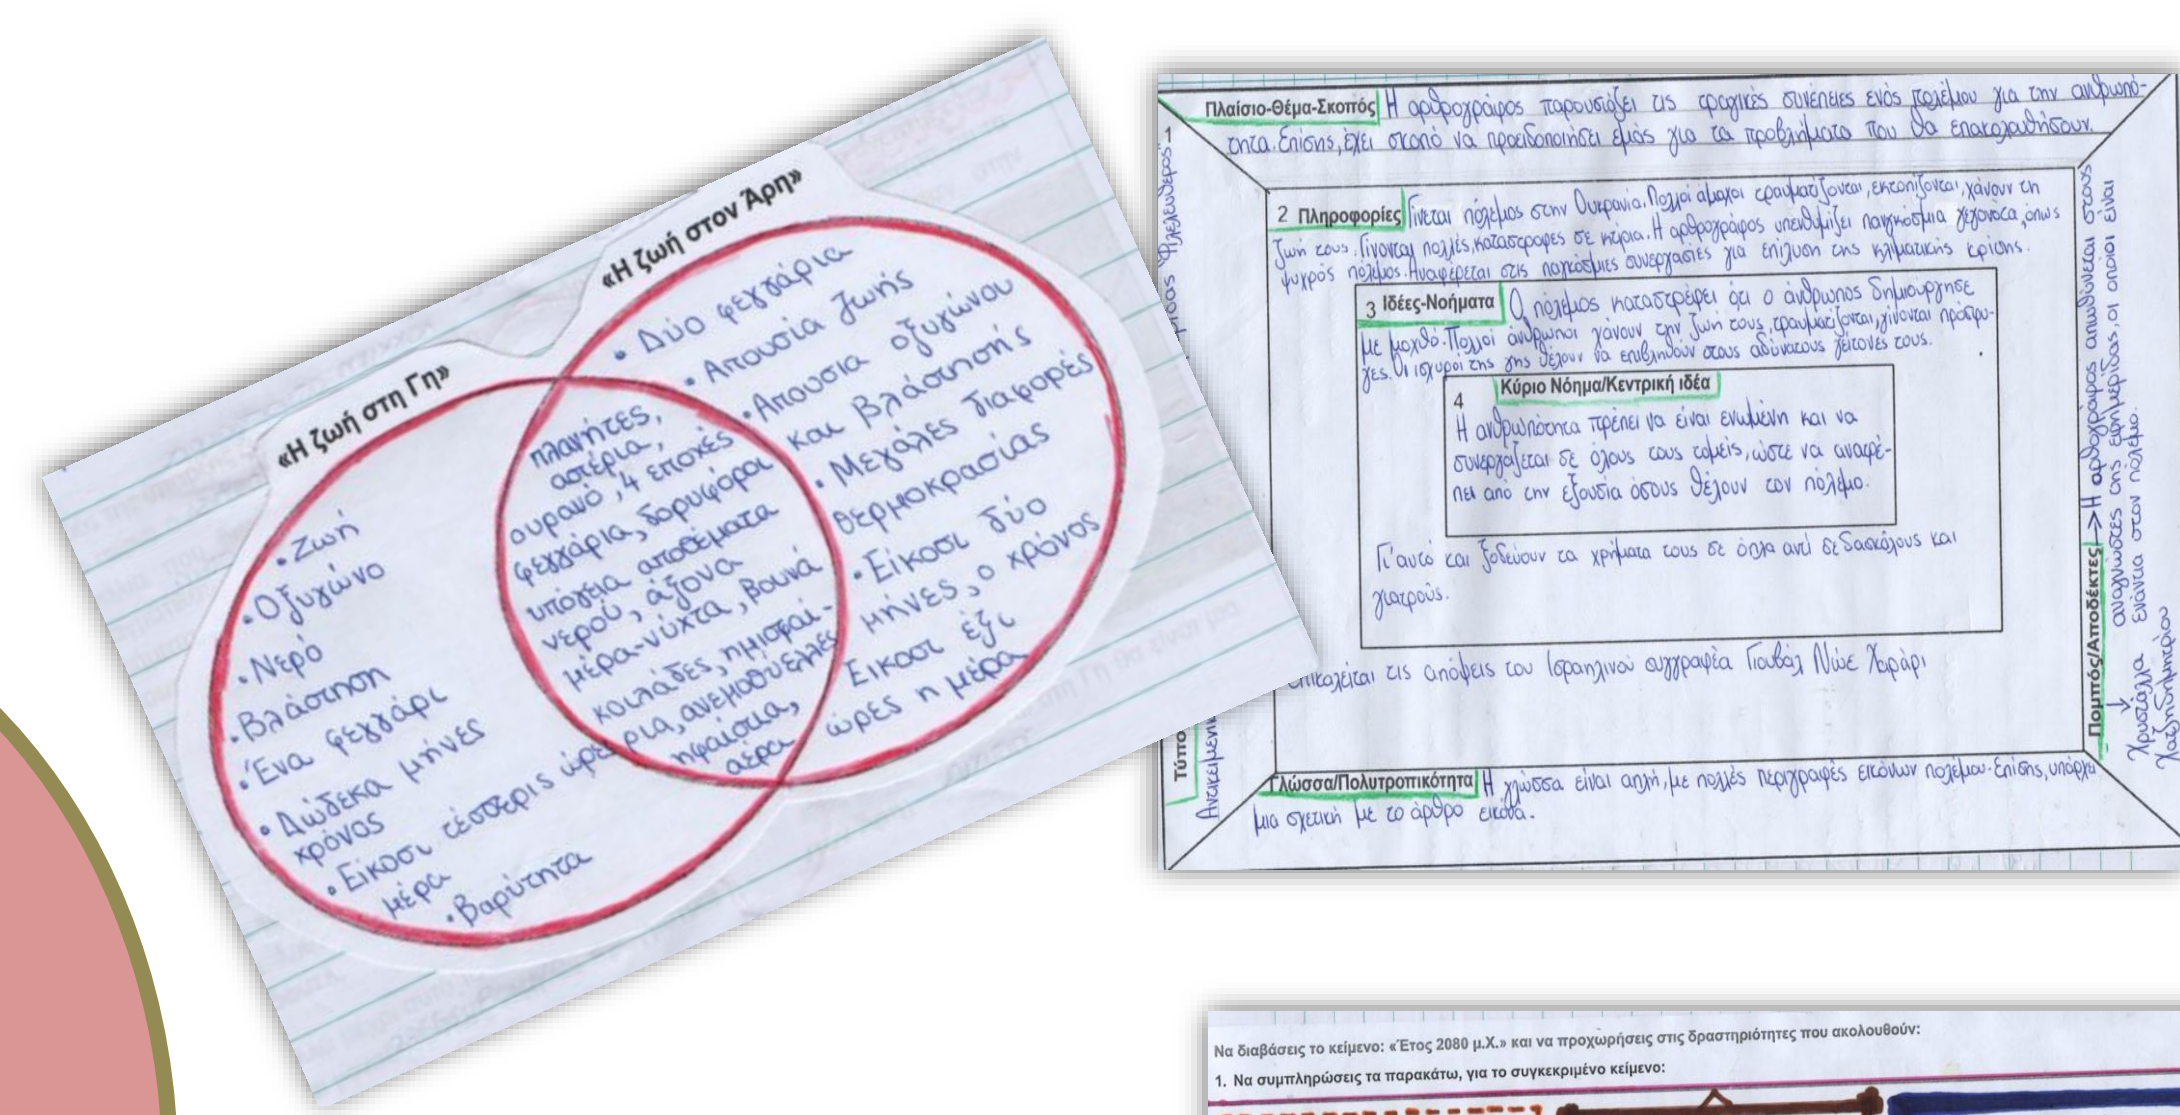 «Η ζωή στη Γη»
• Ζωή
• Οξυγώνο
• Νερό
• Βλάστηση
• Ένα φεγγάρι
• Δώδεκα μήνες
χρόνος
• Είκοσι τέσσερις ώρες
μέρα
• Βαρύτητα
πλανήτες,
αστέρια,
ουρανό, 4 εποχές
φεγγάρια, δορυφόροι
υπόγεια αποθέματα
νερού, άξονα
μέρα-νύχτα, βουνά
κοιλάδες, ημισφαί-
ρια, ανεμοθύελλες
ηφαίστια,
αέρα
«Η ζωή στον Άρη»
• Δύο φεγγάρια
• Απουσία ζωής
• Απουσια οξυγώνου
και βλάστησής
• Μεγάλες διαφορές
θερμοκρασίας
• Είκοσι δύο
μήνες, ο χρόνος
Εικοσι έξι
ώρες η μέρα
Πλαίσιο-Θέμα-Σκοπός Η αρθρογράφος παρουσιάζει τις τραγικές συνέπειες ενός πολέμου για την ανθρωπό-
τητα. Επίσης, έχει σκοπό να προειδοποιήσει εμάς για τα προβλήματα που θα επακολουθήσουν.
1
Φιλελεύθερος"
Τύπο
2 Πληροφορίες Γίνεται πόλεμος στην Ουκρανία. Πολλοί άμαχοι τραυματίζονται, εκτοπίζονται, χάνουν τη
ζωή τους. Γίνονται πολλές, καταστροφες σε κτίρια. Η αρθρογράφος υπενθυμίζει παγκόσμια γεγονότα, όπως
ψυχρός πόλεμος. Αναφέρεται στις παγκόσμιες συνεργασίες για επίλυση της κλιματικής κρίσης.
3 Ιδέες-Νοήματα Ο πόλεμος καταστρέφει ότι ο άνθρωπος δημιούργησε
με μοχθό. Πολλοί άνθρωποι χάνουν την ζωή τους, τραυματίζονται, γίνονται πρόσφυ-
γες. Οι ισχυροί της γης θέλουν να επιβληθούν στους αδύνατους γείτονές τους.
4 Κύριο Νόημα/Κεντρική ιδέα
Η ανθρωπότητα πρέπει να είναι ενωμένη και να
συνεργάζεται σε όλους τους τομείς, ώστε να ανατρέ-
πει από την εξουσία όσους θέλουν τον πόλεμο.
Γι'αυτό και ξοδεύουν τα χρήματα τους σε όπλα αντί σε δασκάλους και
γιατρούς.
τις απόψεις του Ισραηλινού συγγραφέα Γιουβάλ Νώε Χαράρι
Γλώσσα/Πολυτροπικότητα Η γλώσσα είναι απλή, με πολλές περιγραφές εικόνων πολέμου. Επίσης, υπάρχει
μια σχετική με το άρθρο εικόνα.
Πομπός/Αποδέκτες → Η αρθογράφος απευθύνεται στους
αναγνώστες της εφημερίδας, οι οποίοι είναι
ενάντια στον πόλεμο.
↓
Χρυστάλλα
Χατζηδημητρίου
Να διαβάσεις το κείμενο: «Έτος 2080 μ.Χ.» και να προχωρήσεις στις δραστηριότητες που ακολουθούν:
1. Να συμπληρώσεις τα παρακάτω, για το συγκεκριμένο κείμενο: